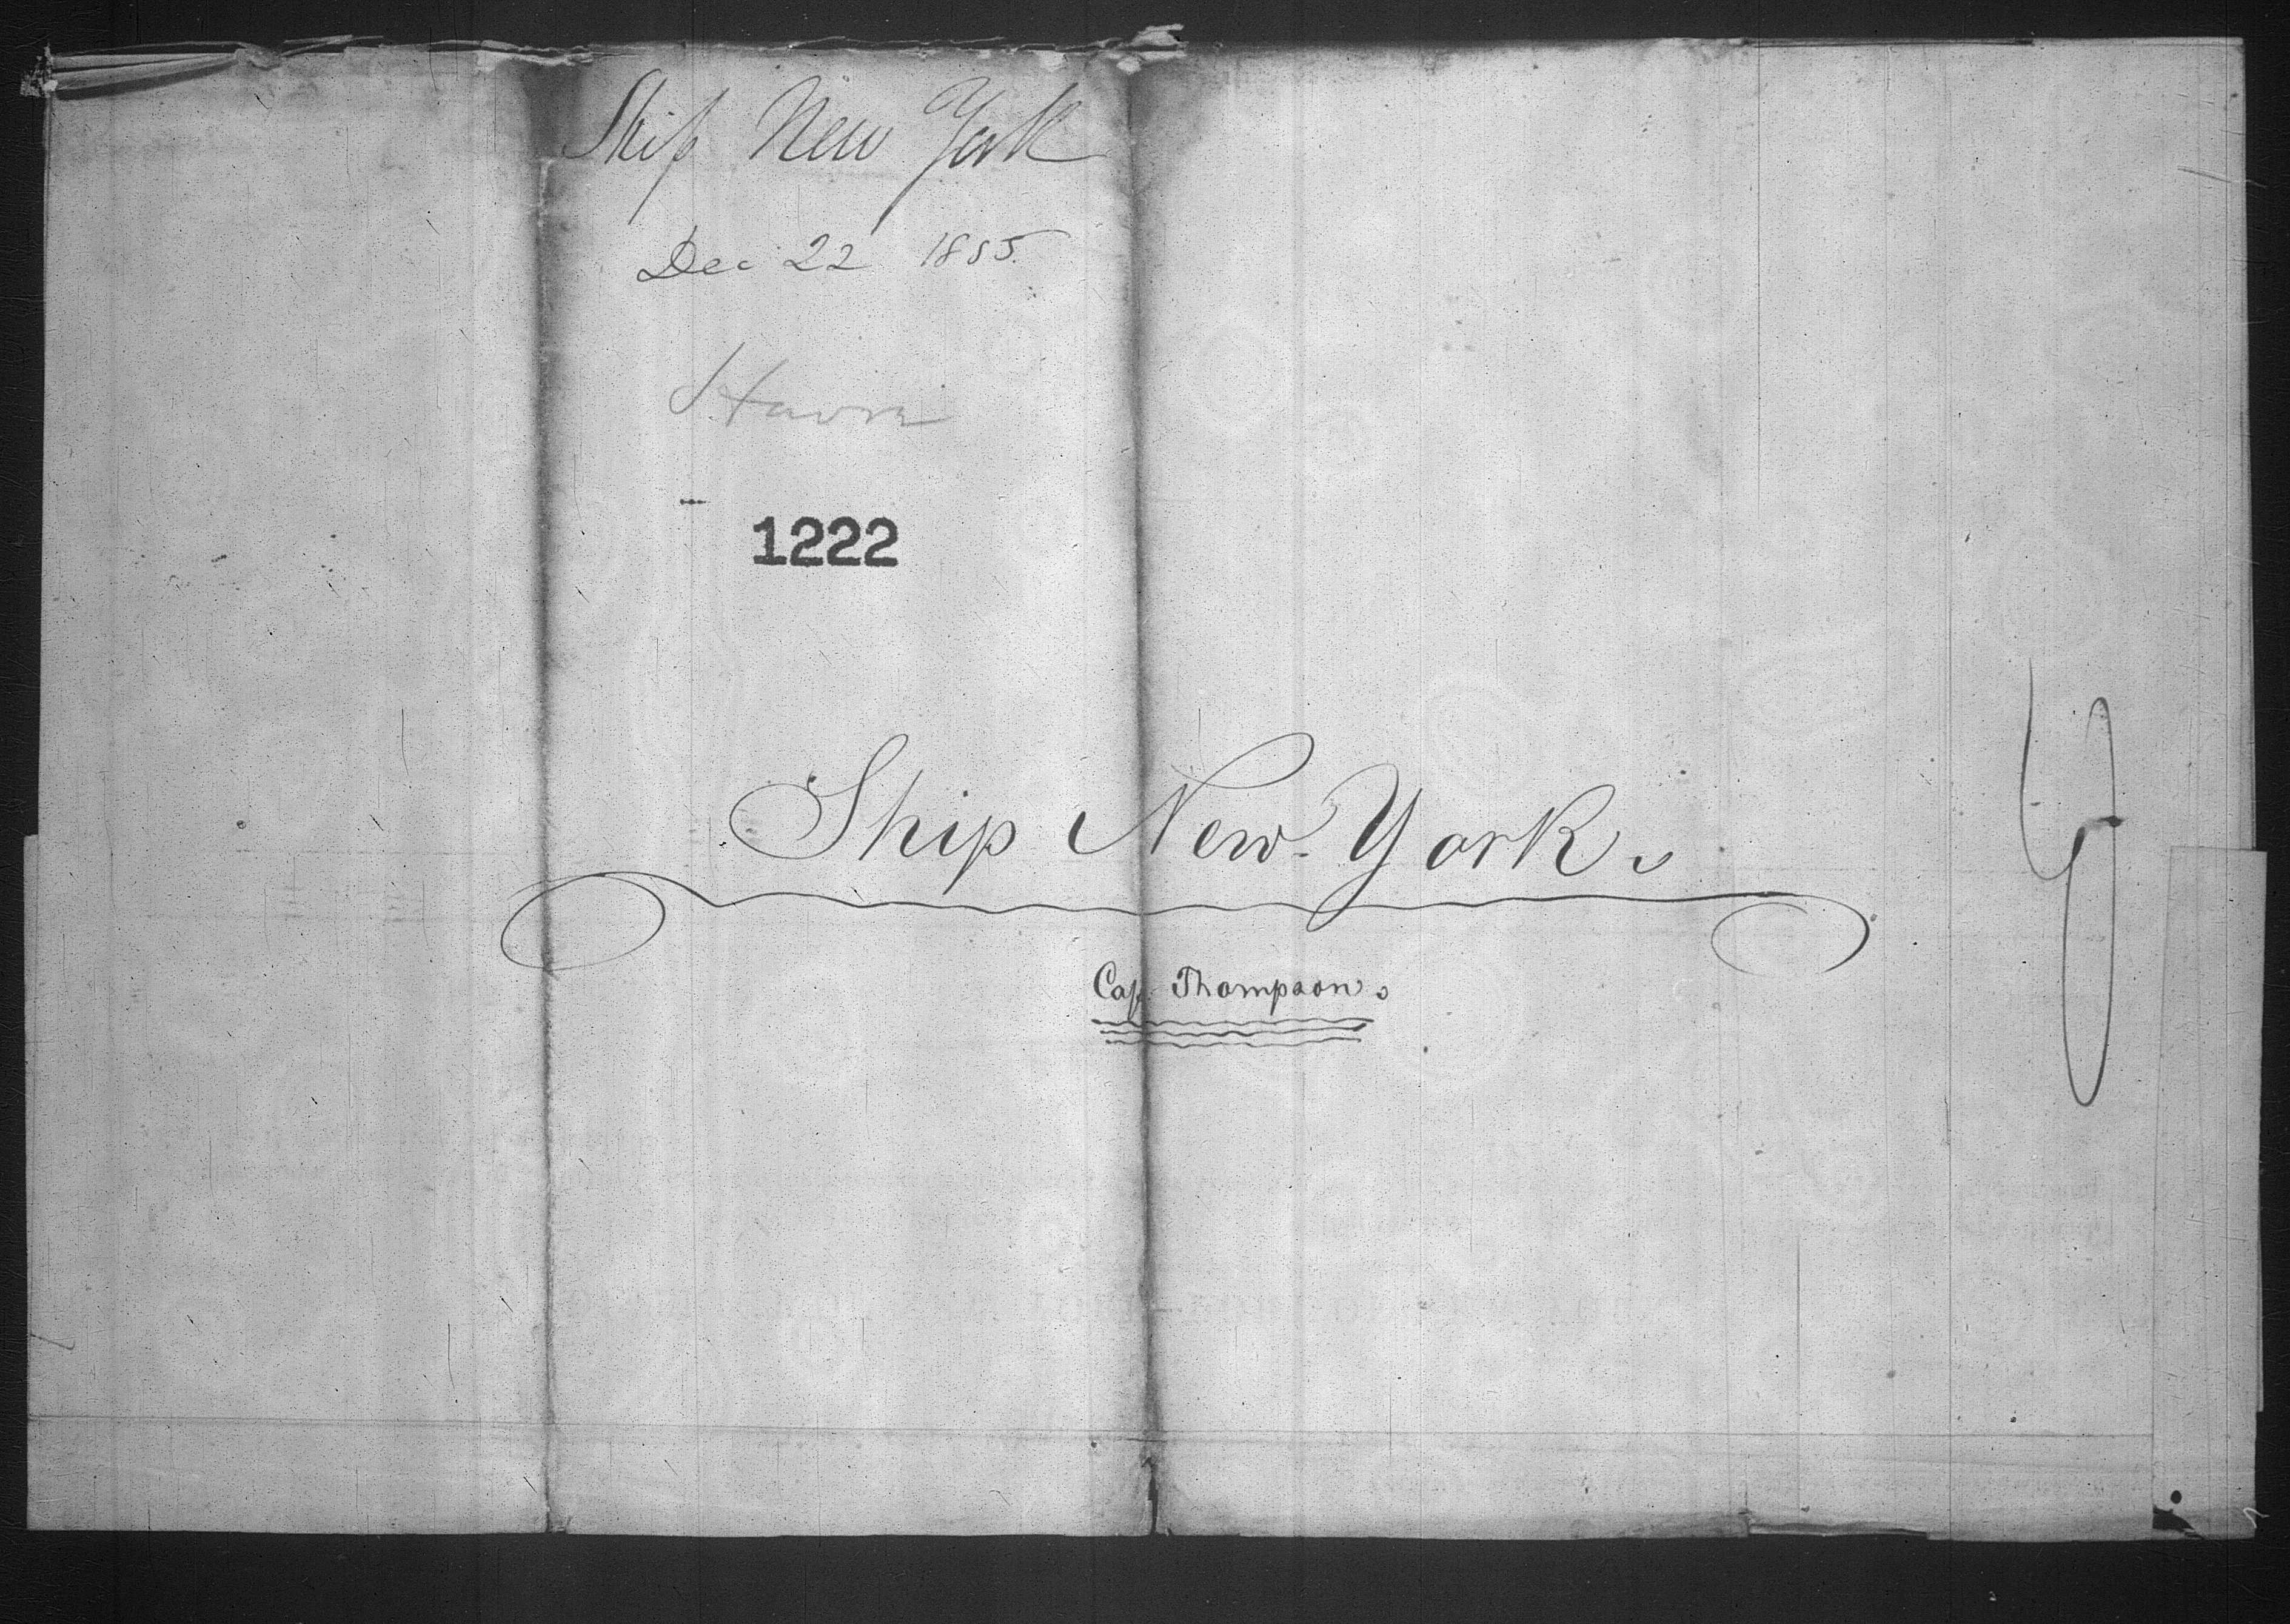 Ship New York
Dec 22 1855.
Havre
1222
Ship New-York.
Cap. Thompson.